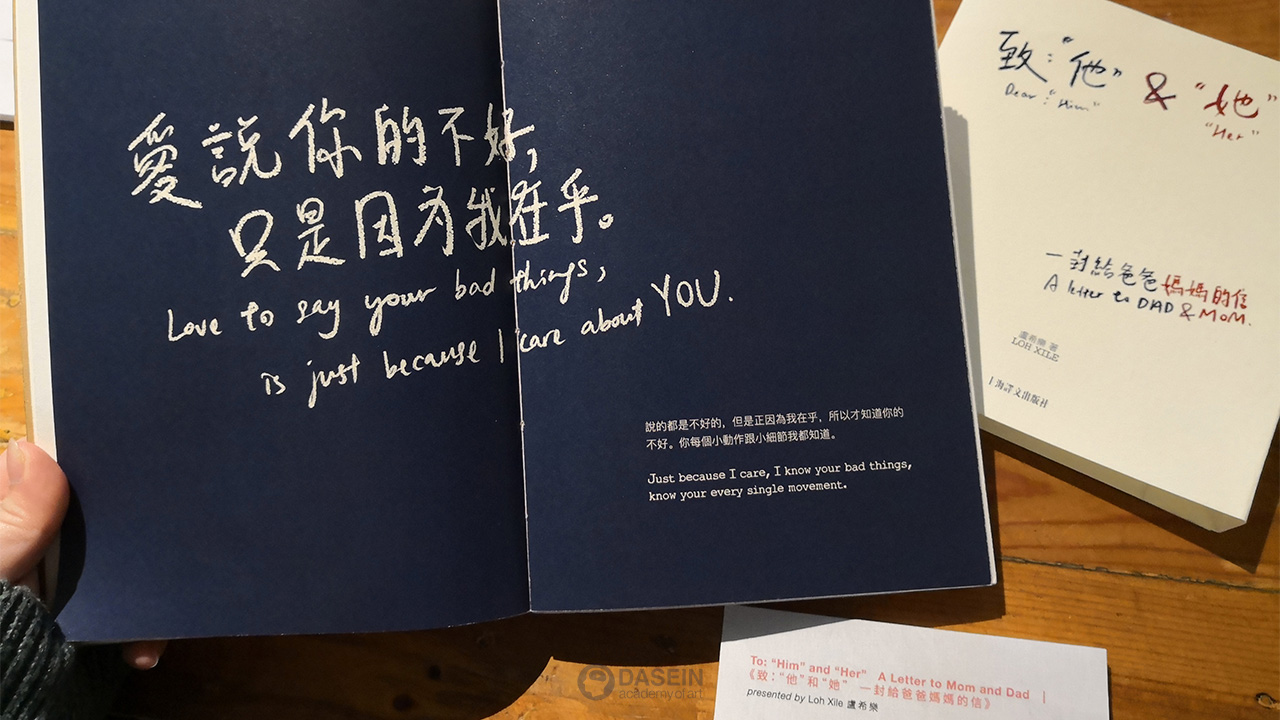 愛說你的不好，
只是因為我在乎。
Love to say your bad things,
is just because I care about YOU.
說的都是不好的，但是正因為我在乎，所以才知道你的
不好。你每個小動作跟小細節我都知道。
Just because I care, I know your bad things,
know your every single movement.
致：“他” & “她”
Dear: “Him” “Her”
一封給爸爸媽媽的信
A letter to DAD & MOM.
盧希樂 著
LOH XILE
上海譯文出版社
To: “Him” and “Her” A Letter to Mom and Dad |
《致：“他”和“她” 一封給爸爸媽媽的信》
presented by Loh Xile 盧希樂
DASEIN
academy of art